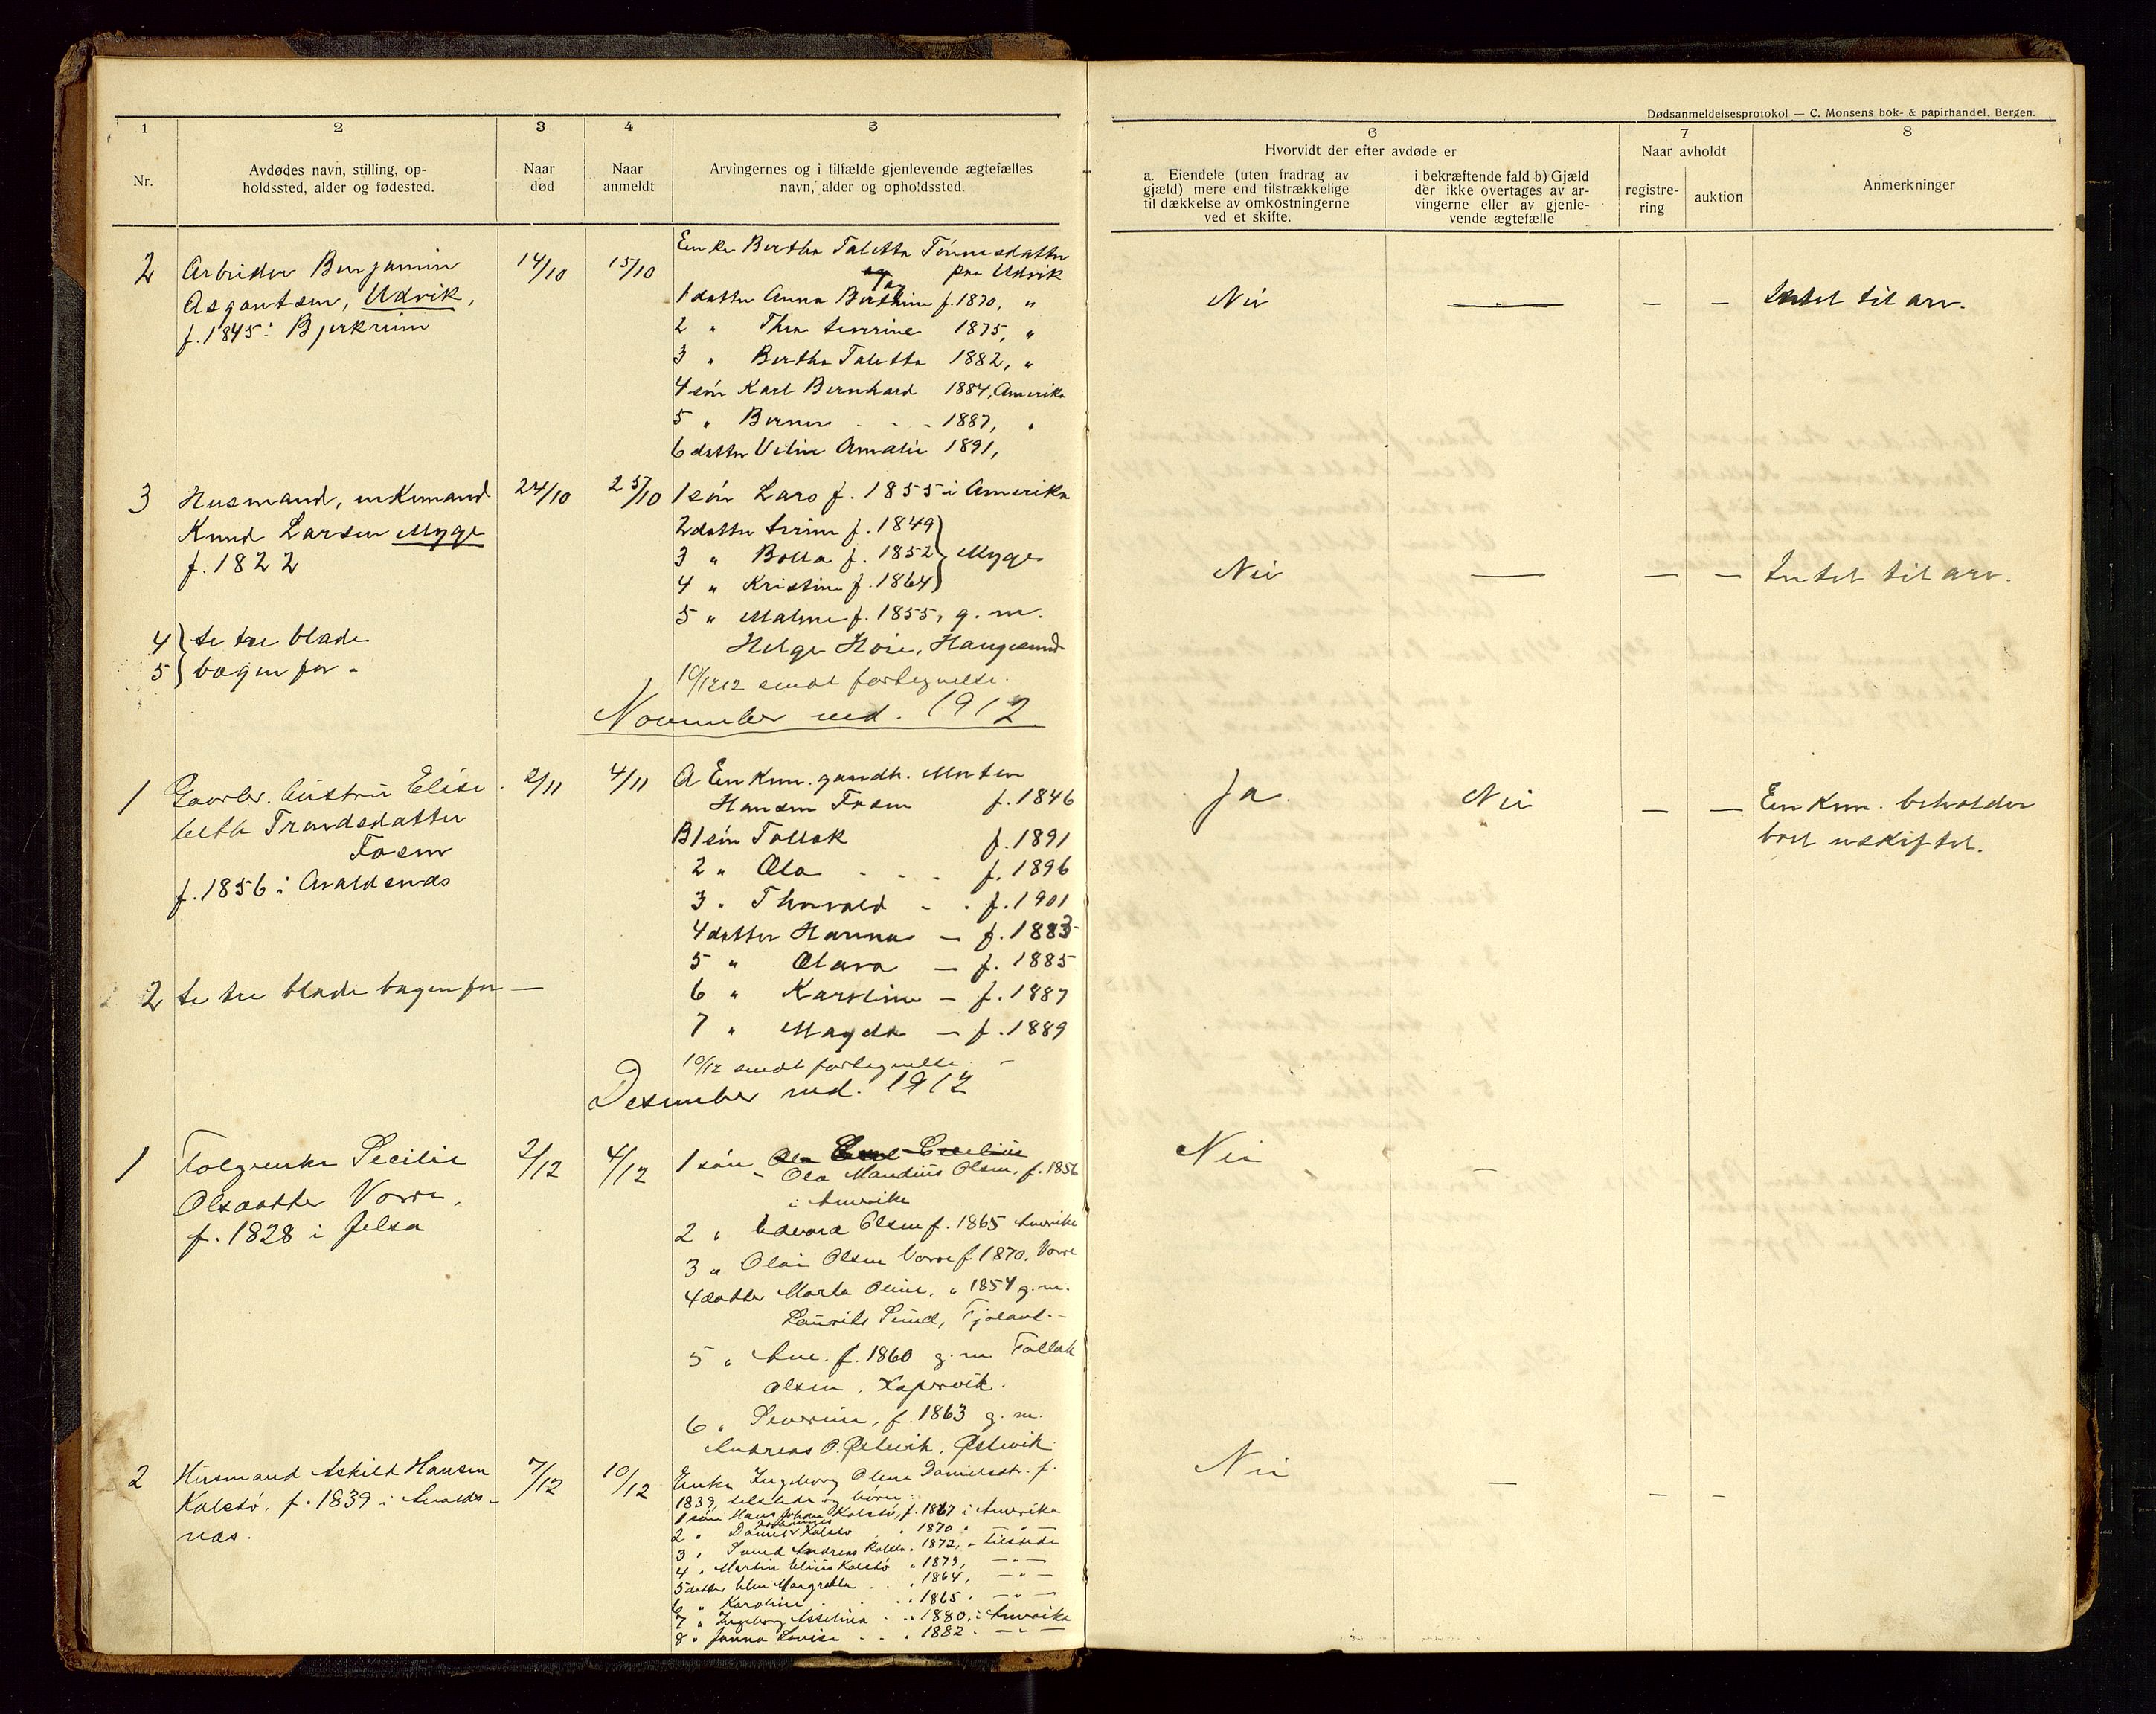 Dødsanmeldelsesprotokol — C. Monsens bok- & papirhandel, Bergen.
1 2 3 4 5 6 7 8
Nr.
Avdødes navn, stilling, op-
holdssted, alder og fødested.
Naar
død
Naar
anmeldt
Arvingernes og i tilfælde gjenlevende ægtefælles
navn, alder og opholdssted.
Hvorvidt der efter avdøde er
a. Eiendele (uten fradrag av
gjæld) mere end tilstrækkelige
til dækkelse av omkostningerne
ved et skifte.
i bekræftende fald b) Gjæld
der ikke overtages av ar-
vingerne eller av gjenle-
vende ægtefælle
Naar avholdt
registre-
ring
auktion
Anmerkninger
2 Arbeider Benjamin
Asgautsen, Udvik,
f. 1845 i Bjerkrim
14/10 15/10
Enke Bertha Taletta Tønnesdatter
paa Udvik
1 datter Anna Berthine f. 1870, "
2 " Thea Severine 1875, "
3 " Bertha Taletta 1882, "
4 søn Karl Bernhard 1884, Amerika
5 " Berner 1887, "
6 datter Amalie 1891,
Nei — — — Intet til arv.
3 Husmand, enkemand
Knud Larsen Myge
f. 1822
24/10 25/10
1 søn Lars f. 1855 i Amerika
2 datter Serine f. 1849
3 " Bolla f. 1852 } Myge
4 " Kristine f. 1864
5 " Malene f. 1855, g. m.
Helge Høie, Haugesund
Nei — — — Intet til arv.
4 } se tre blade
5 } bagenfor -
10/12 12 sendt fortegnelse.
November md. 1912
1 Gaardbr. hustru Elise-
beth Trondsdatter
Fosen
f. 1856 i Avaldsnes
2/11 4/11
A Enkem. gaardb. Morten
Hansen Fosen f. 1846
B 1 søn Tollak f. 1891
2 " Ola - - - f. 1896
3 " Thorvald - - f. 1901
4 datter Hanna — f. 1883
5 " Olava — f. 1885
6 " Karoline — f. 1887
7 " Magda — f. 1889
Ja. Nei — — Enkem. beholder
boet uskiftet.
2 se tre blade bagenfor —
10/12 sendt fortegnelse. —
Desember md. 1912
1 Folgeenke Secilie
Olsdatter Vorre,
f. 1828 i Jelsa
2/12 4/12
1 søn
Ola Mandius Olsen, f. 1856
i Amerika
2 " Edvard Olsen f. 1865 Amerika
3 " Olai Olsen Vorre f. 1870, Vorre
4 datter Marta Oline, " 1854 g. m.
Laurits Sund, Fjeland. -
5 " Ane. f. 1860 g. m. Tollak
Olsen, Kopervik.
6 " Severine, f. 1863 g. m.
Andreas O. Østevik, Østevik.
Nei
2 Husmand Askild Hansen
Kalstø, f. 1839 i Avalds-
nes.
7/12 10/12
Enke Ingeborg Oline Danielsdtr. f.
1839, tilstede og børn:
1 søn Hans Johan Kalstø, f. 1867 i Amerika
2 " Daniel Johannes Kalstø " 1870 " — " —
3 " Svend Andreas Kalstø " 1872, " tilstede
4 " Martin Elius Kalstø " 1879, — " —
5 datter Elen Margretha . . " 1864, — " —
6 " Karoline . . " 1865 . — " —
7 " Ingeborg Asseline . . " 1880, i Amerika
8 " Janna Lovise . . " 1882 . — " —
Nei — — —